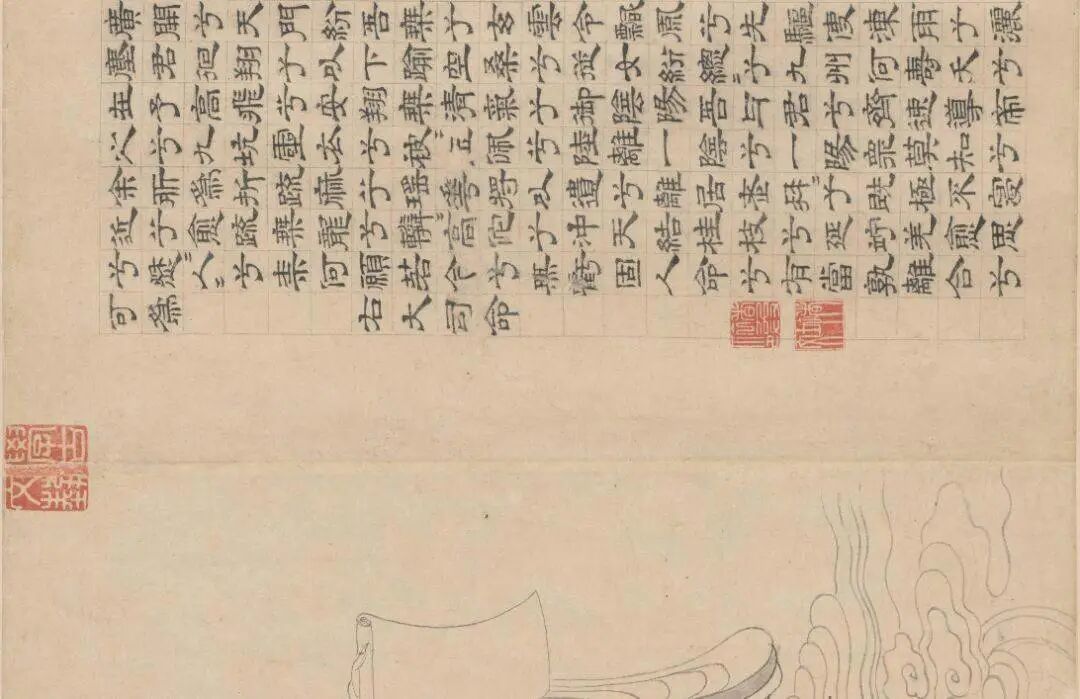 廣開兮天門紛吾椉兮玄雲令飄風兮先驅使涷雨兮灑
塵君迴翔兮以下踰空桑兮從女紛緫〻兮九州何壽夭兮
在予高飛兮安翔椉清氣兮御陰陽吾與君兮齊速導帝
之兮九坑靈衣兮被〻玉佩兮陸離一陰兮一陽衆莫知兮
余所為折疏麻兮瑤華將以遺兮離居老冉〻兮既極不寖
近兮愈疏椉龍兮轔〻高駝兮沖天結桂枝兮延竚羌愈思
兮愁人〻兮柰何願若今兮無虧固人命兮有當孰離合兮
可為
右大司命